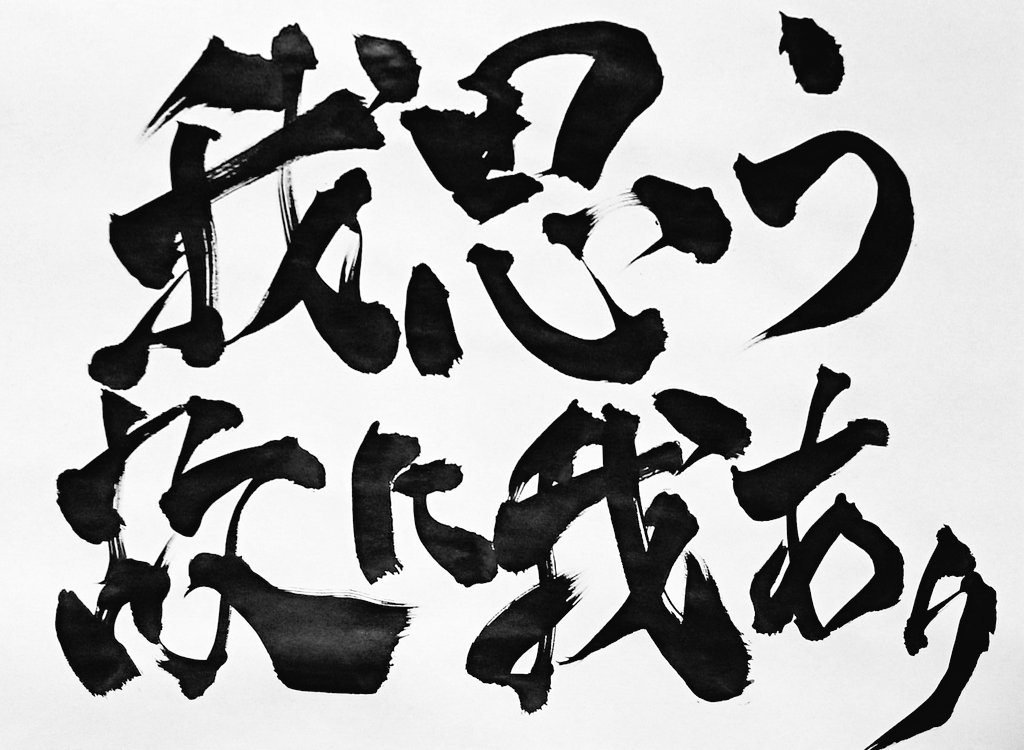 我思う
故に我あり